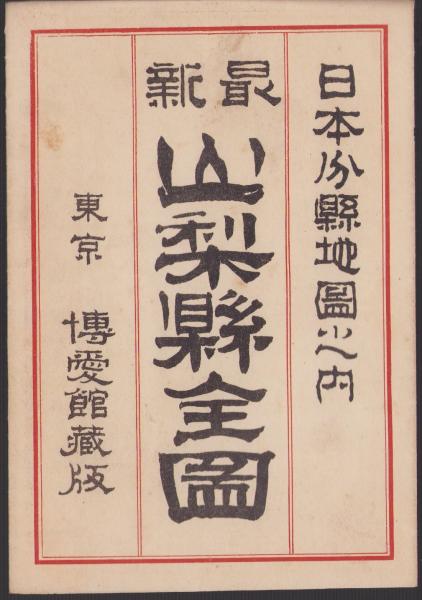 日本分縣地圖之內
最新
山梨縣全圖
東京 博愛館藏版